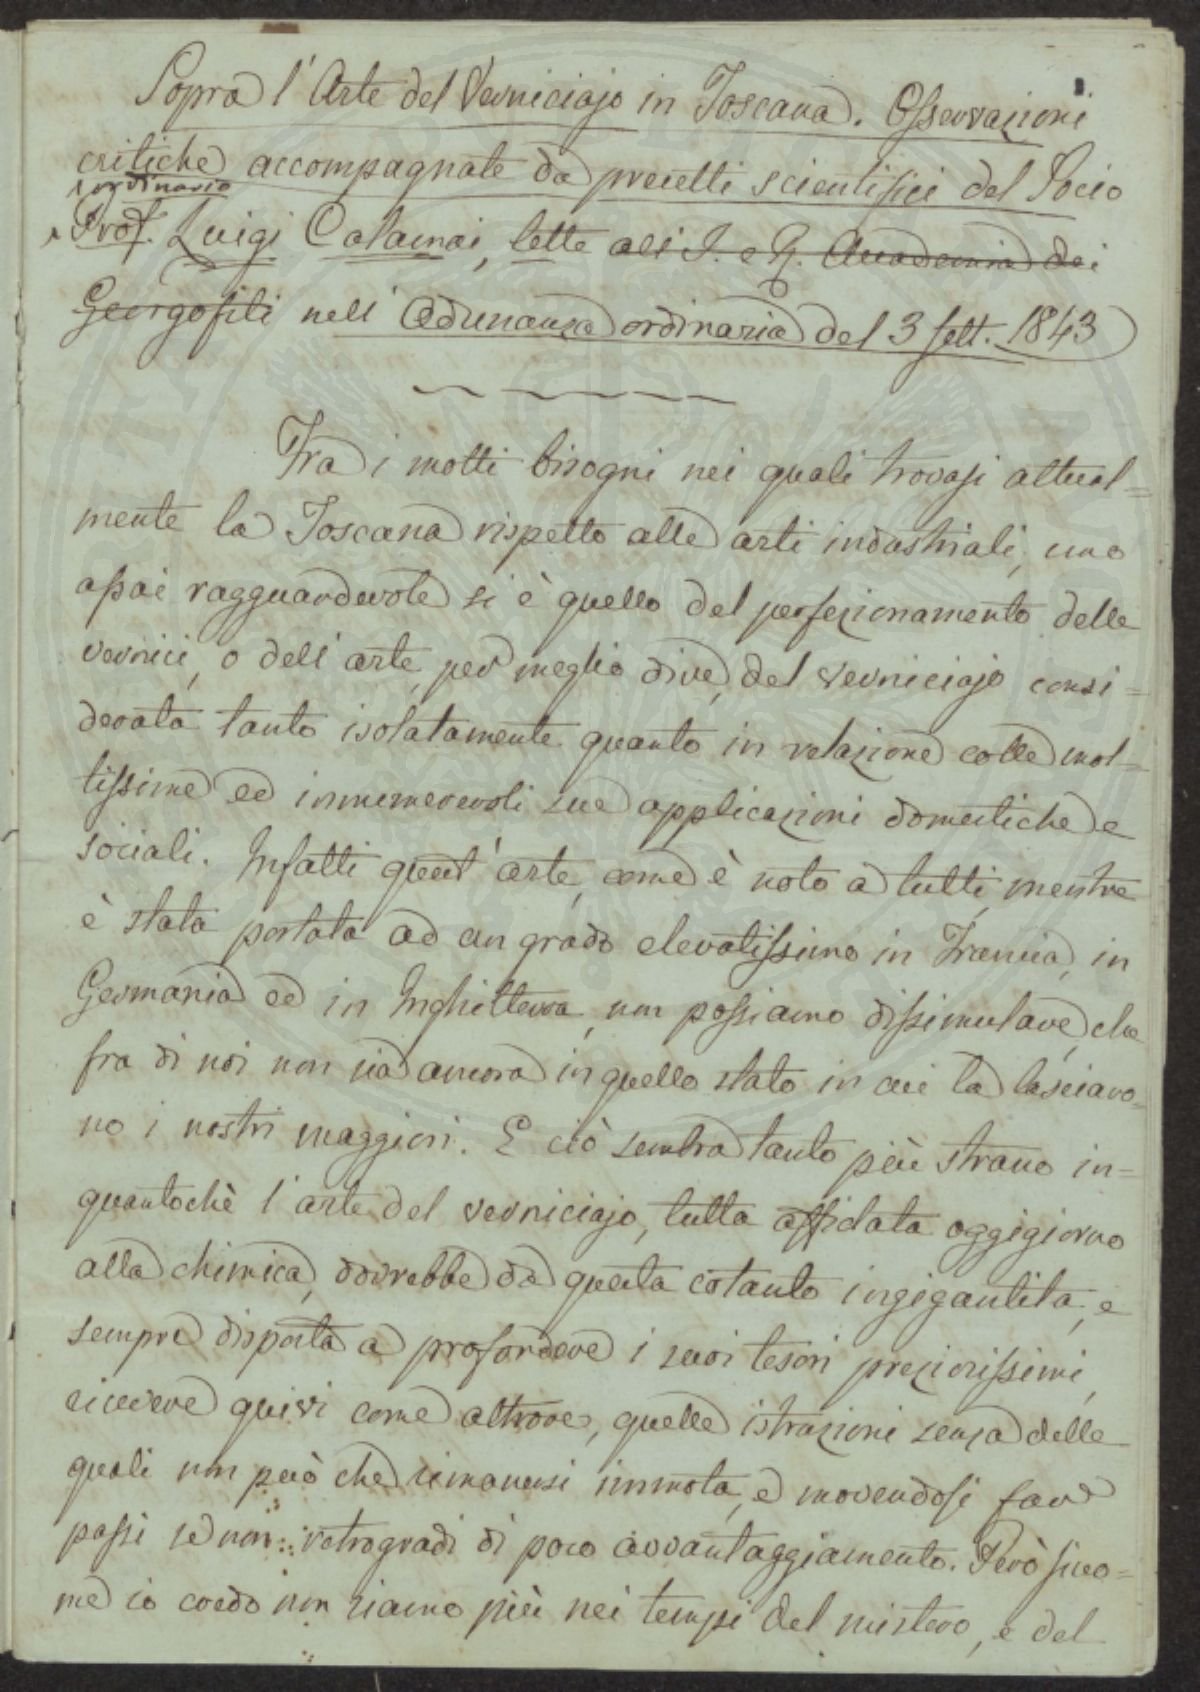 Sopra l'Arte del Verniciajo in Toscana. Osservazioni
critiche accompagnate da precetti scientifici del Socio
ordinario
Prof. Luigi Calamai, lette all'I. e R. Accademia dei
Georgofili nell'Adunanza ordinaria del 3 Sett. 1843
Fra i molti bisogni nei quali trovasi attual=
mente la Toscana rispetto alle arti industriali, uno
assai ragguardevole si è quello del perfezionamento delle
vernici, o dell'arte, per meglio dire, del verniciajo consi=
derata tanto isolatamente quanto in relazione colle mol=
tissime ed innumerevoli sue applicazioni domestiche e
sociali. Infatti quest'arte, come è noto a tutti, mentre
è stata portata ad un grado elevatissimo in Francia, in
Germania ed in Inghilterra, non possiamo dissimulare, che
fra di noi non sia ancora in quello stato in cui la lasciaro=
no i nostri maggiori. E ciò sembra tanto più strano in=
quantochè l'arte del verniciajo, tutta affidata oggigiorno
alla chimica, dovrebbe da questa cotanto ingigantita, e
sempre disposta a profondere i suoi tesori preziosissimi,
ricevere quivi come altrove, quelle istruzioni senza delle
quali non può che rimanersi immota, e movendosi far
passi se non retrogradi di poco avvantaggiamento. Però sicco=
me io credo non siamo più nei tempi del mistero, e del